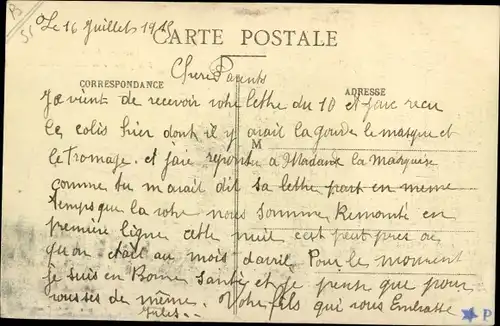 Le 16 Juillets 1915
CARTE POSTALE
Chers Parents
CORRESPONDANCE
ADRESSE
Je vient de recevoir votre lettre du 10 et jaie recu
le colis hier dont il y avait la gourde le masque et
M
le fromage. et jaie repondu a Madame la Marquise
comme tu mavait dit sa lettre part en meme
temps que la votre nous somme Remonté en
première ligne cette nuit cest peut pres ou
quon était au mois davril. Pour le moment
je suis en Bonne Santé et je pense que pour
vous ses de même. Votre fils qui vous Embrasse
Jules..
P